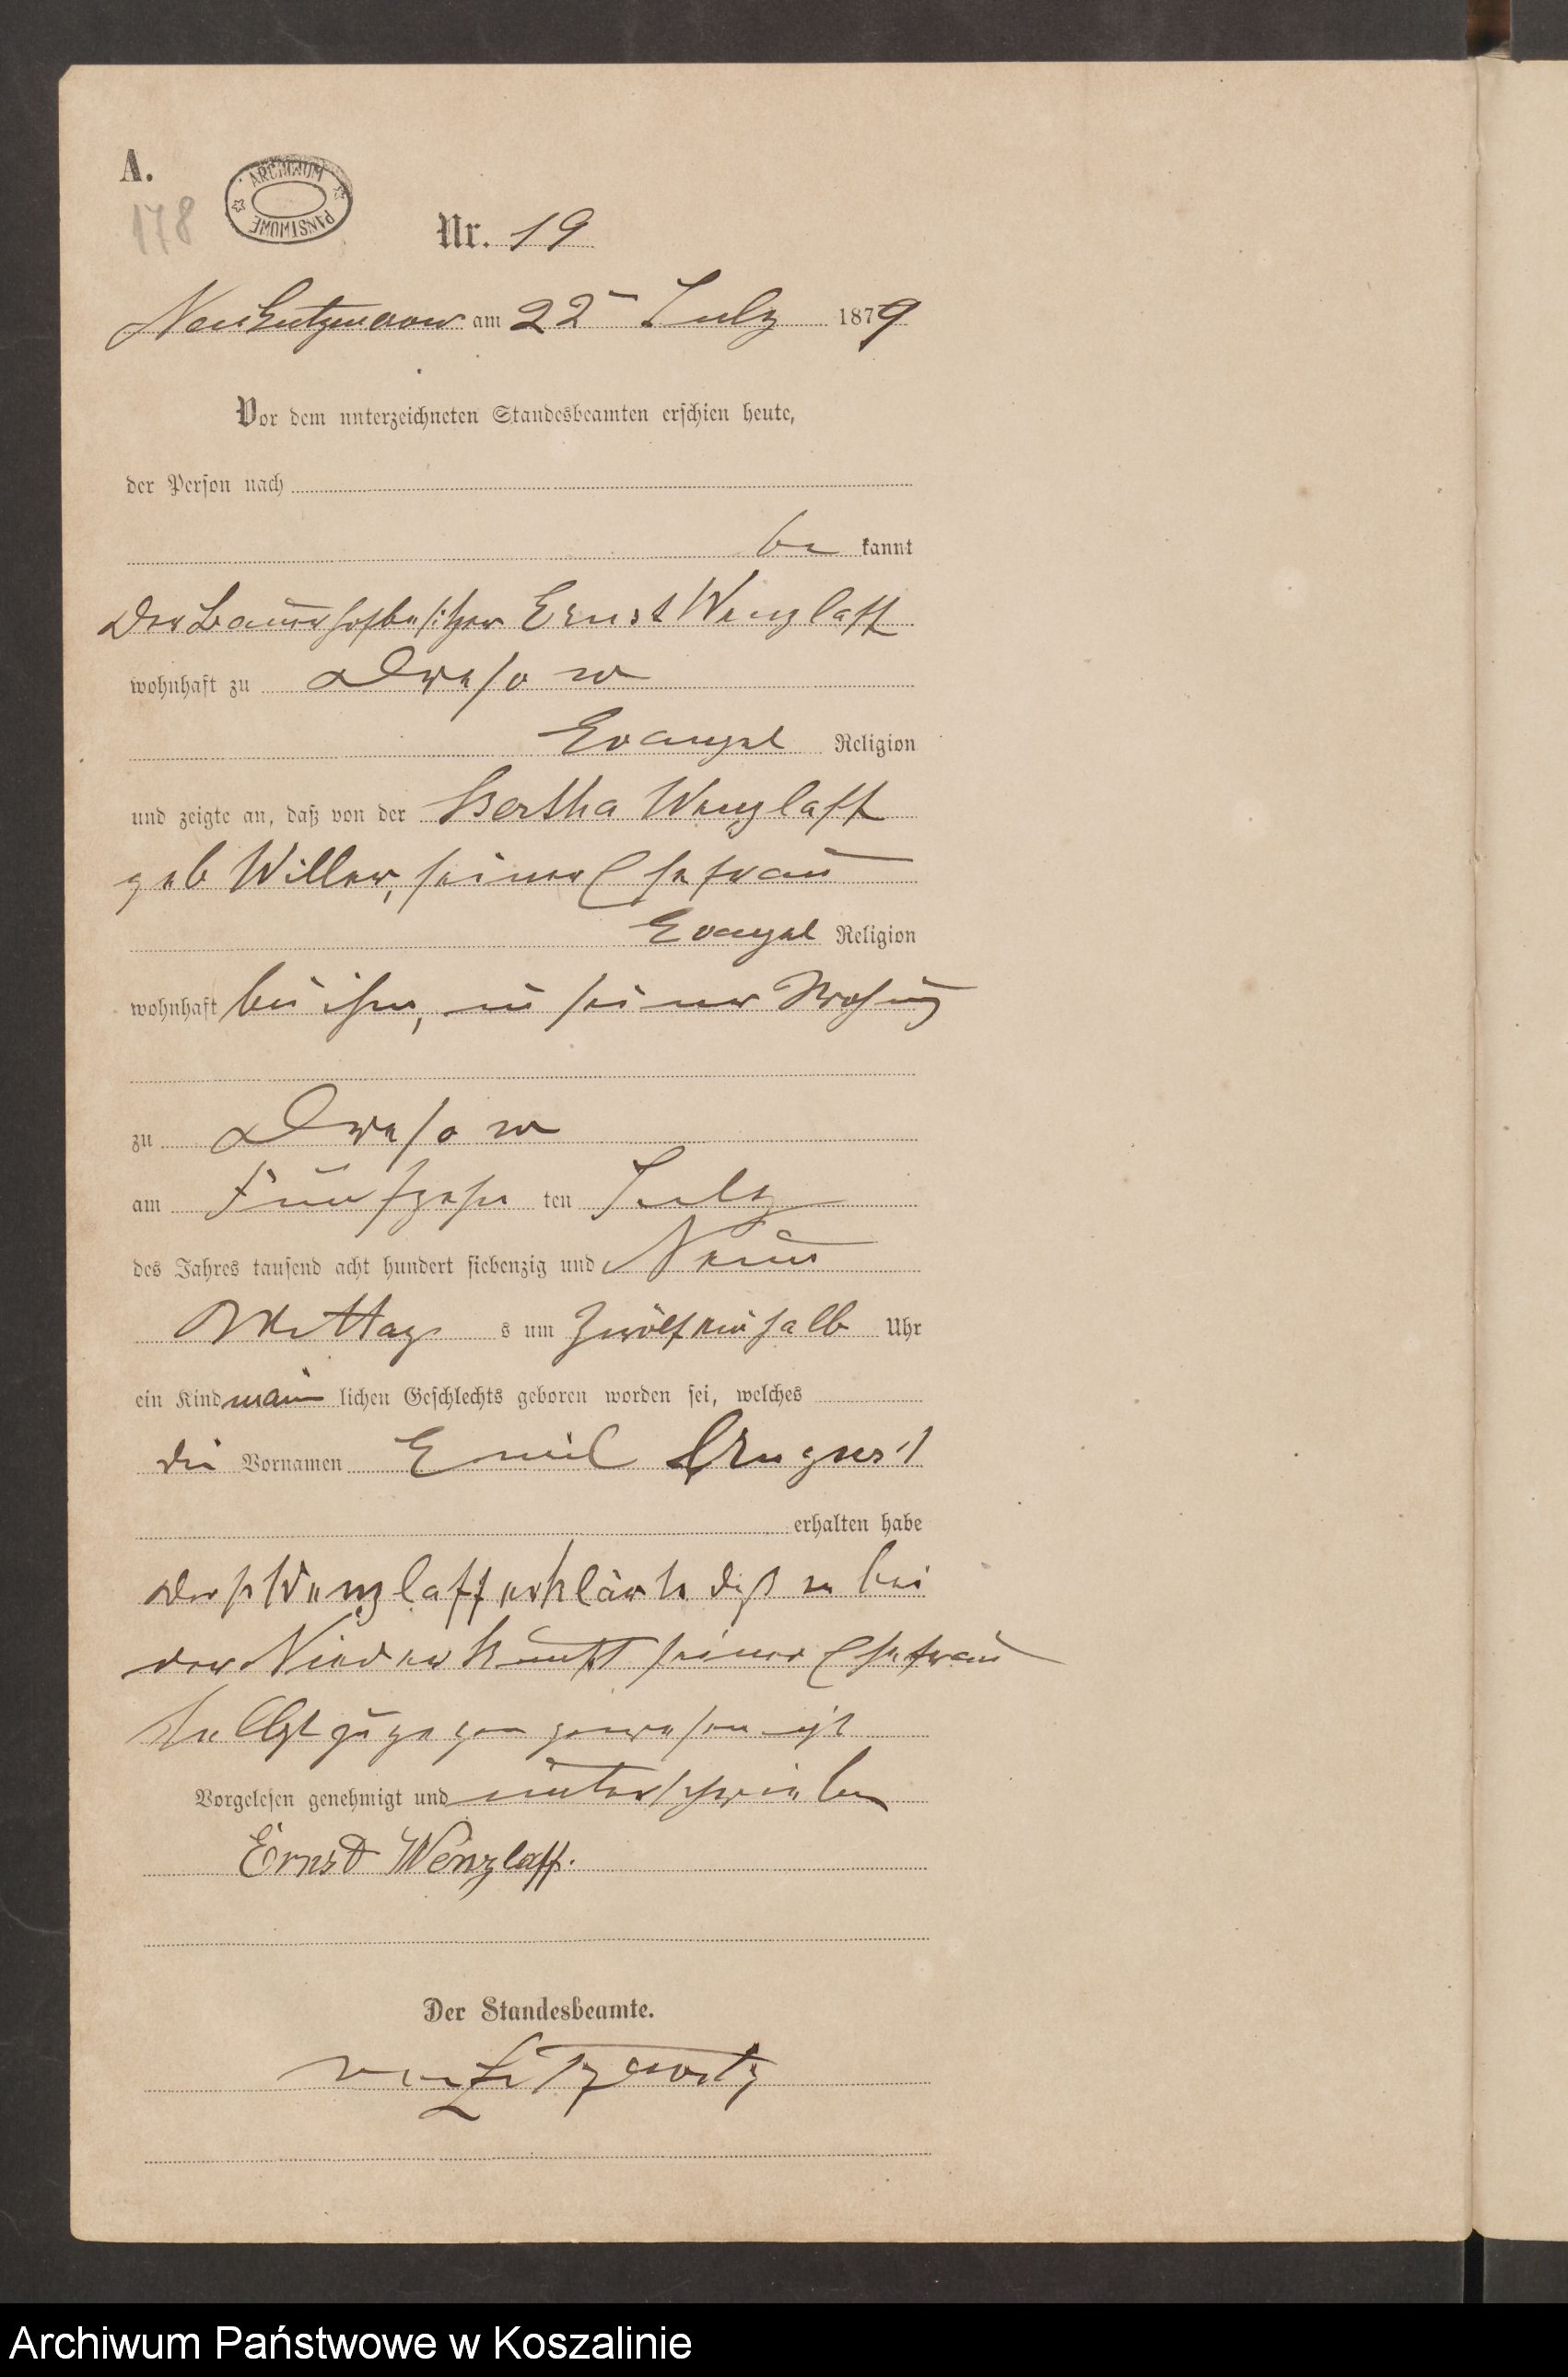 A.
ARCHIWUM PAŃSTWOWE
178
Nr. 19
am 22 July 1879
Vor dem unterzeichneten Standesbeamten erschien heute,
der Person nach
be kannt
Der Bauerhofbesitzer Ernst Wenzlaff
wohnhaft zu Dresow
Evangel Religion
und zeigte an, daß von der Bertha Wenzlaff
geb Willer, seiner Ehefrau
Evangel Religion
wohnhaft bei ihm, in seiner Wohung
zu Dresow
am Fünfzehn ten July
des Jahres tausend acht hundert siebenzig und Neun
Mittag s um Zwölfeinhalb Uhr
ein Kind männ lichen Geschlechts geboren worden sei, welches
die Vornamen Emil August
erhalten habe
Der Wenzlaff erklärte daß er bei
der Niederkunft seiner Ehefrau
selbst zugegen gewesen ist
Vorgelesen genehmigt und unterschrieben
Ernst Wenzlaff.
Der Standesbeamte.
von Zitzewitz
Archiwum Państwowe w Koszalinie